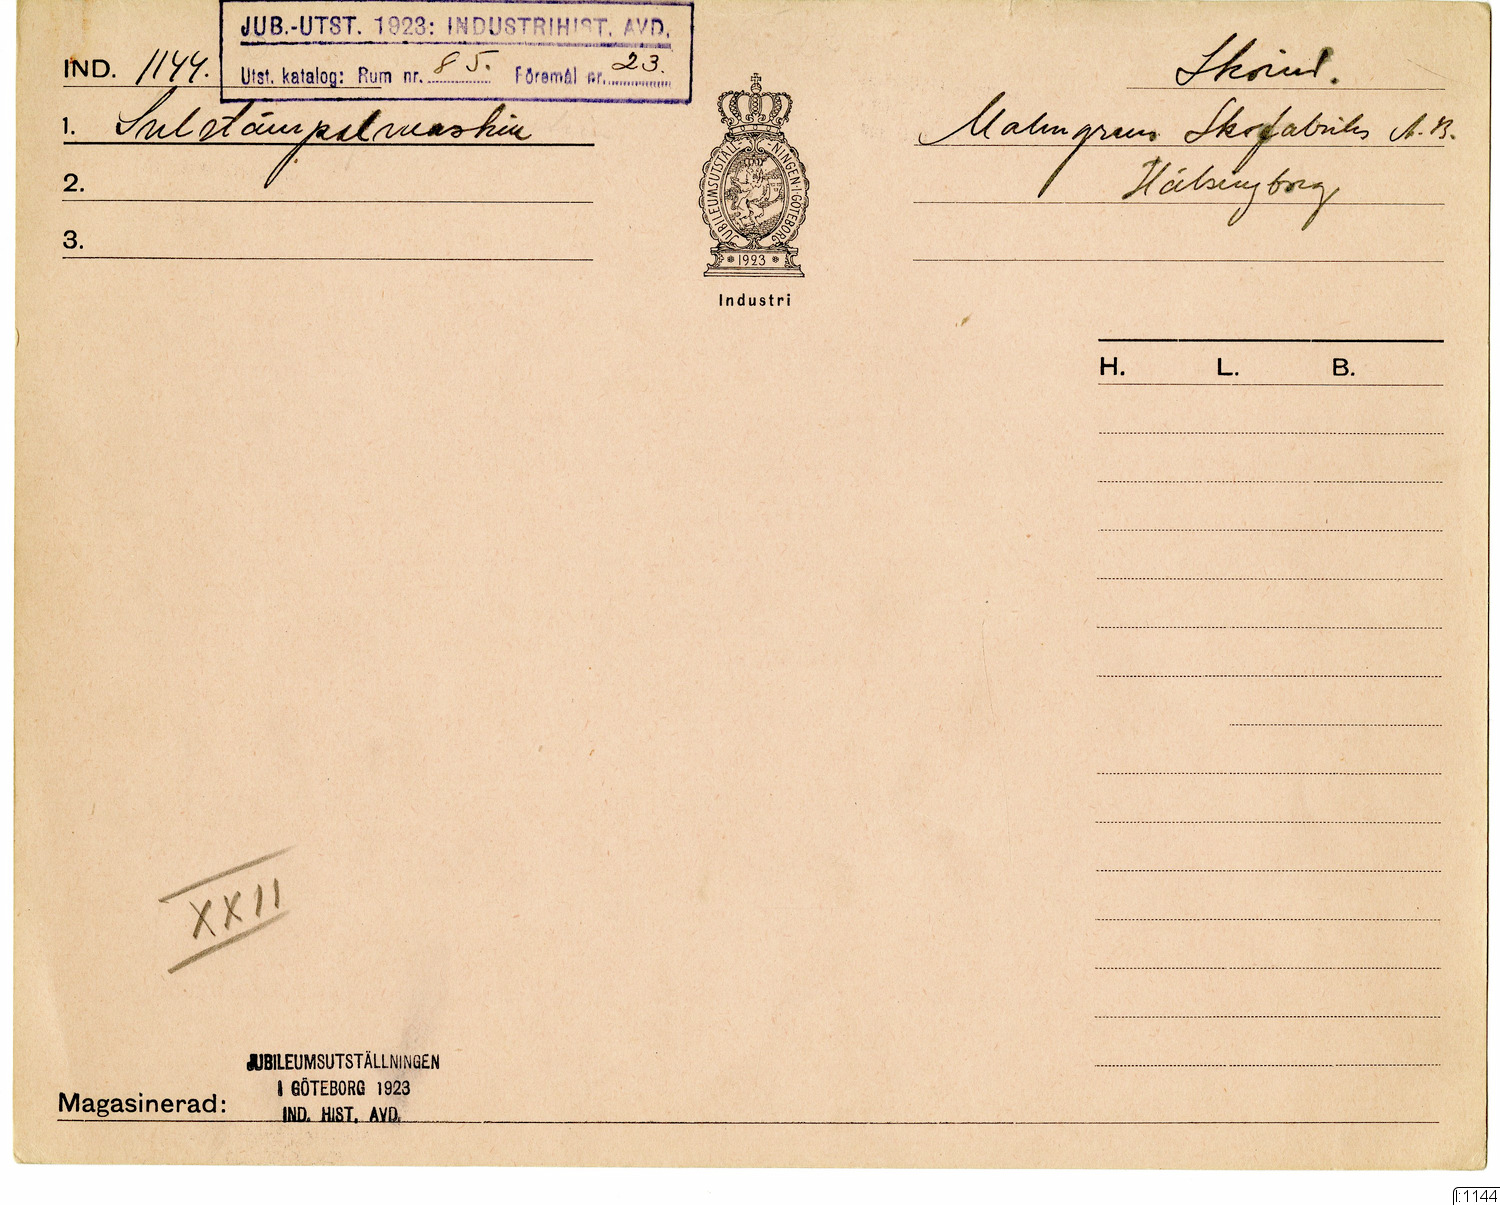 JUB.-UTST. 1923: INDUSTRIHIST. AVD.
Utst. katalog: Rum nr. 85. Föremål nr. 23.
IND. 1144.
1. Sulstämpelmaskin
2.
3.
JUBILEUMSUTSTÄLLNINGEN·I·GÖTEBORG
* 1923 *
Industri
Skoind.
Malmgrens Skofabriks A.B.
Hälsingborg
H. L. B.
XXII
JUBILEUMSUTSTÄLLNINGEN
I GÖTEBORG 1923
IND. HIST. AVD.
Magasinerad:
I:1144